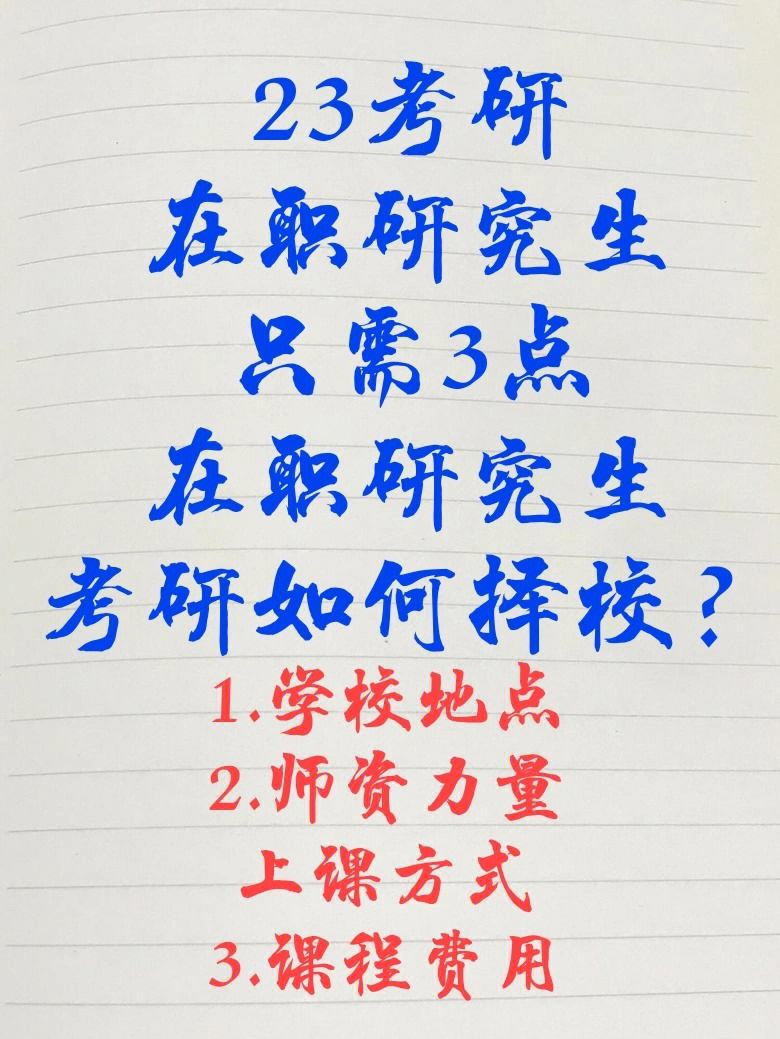 23考研
在职研究生
只需3点
在职研究生
考研如何择校?
1.学校地点
2.师资力量
上课方式
3.课程费用